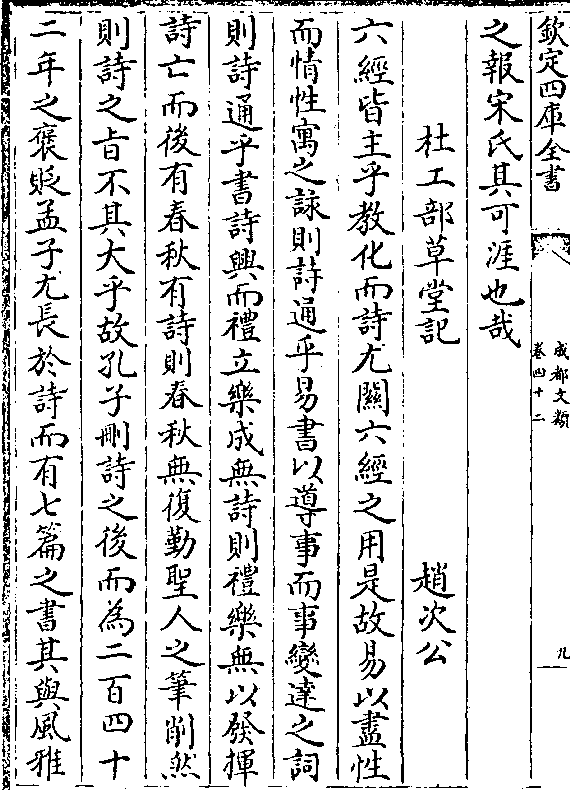 欽定四庫全書
成都文類
卷四十二
九
之報宋氏其可涯也哉
杜工部草堂記
趙次公
六經皆主乎教化而詩尤關六經之用是故易以盡性
而情性寓之詠則詩通乎易書以導事而事變達之詞
則詩通乎書詩興而禮立樂成無詩則禮樂無以發揮
詩亡而後有春秋有詩則春秋無復勤聖人之筆削然
則詩之旨不其大乎故孔子刪詩之後而為二百四十
二年之襃貶孟子尤長於詩而有七篇之書其與風雅